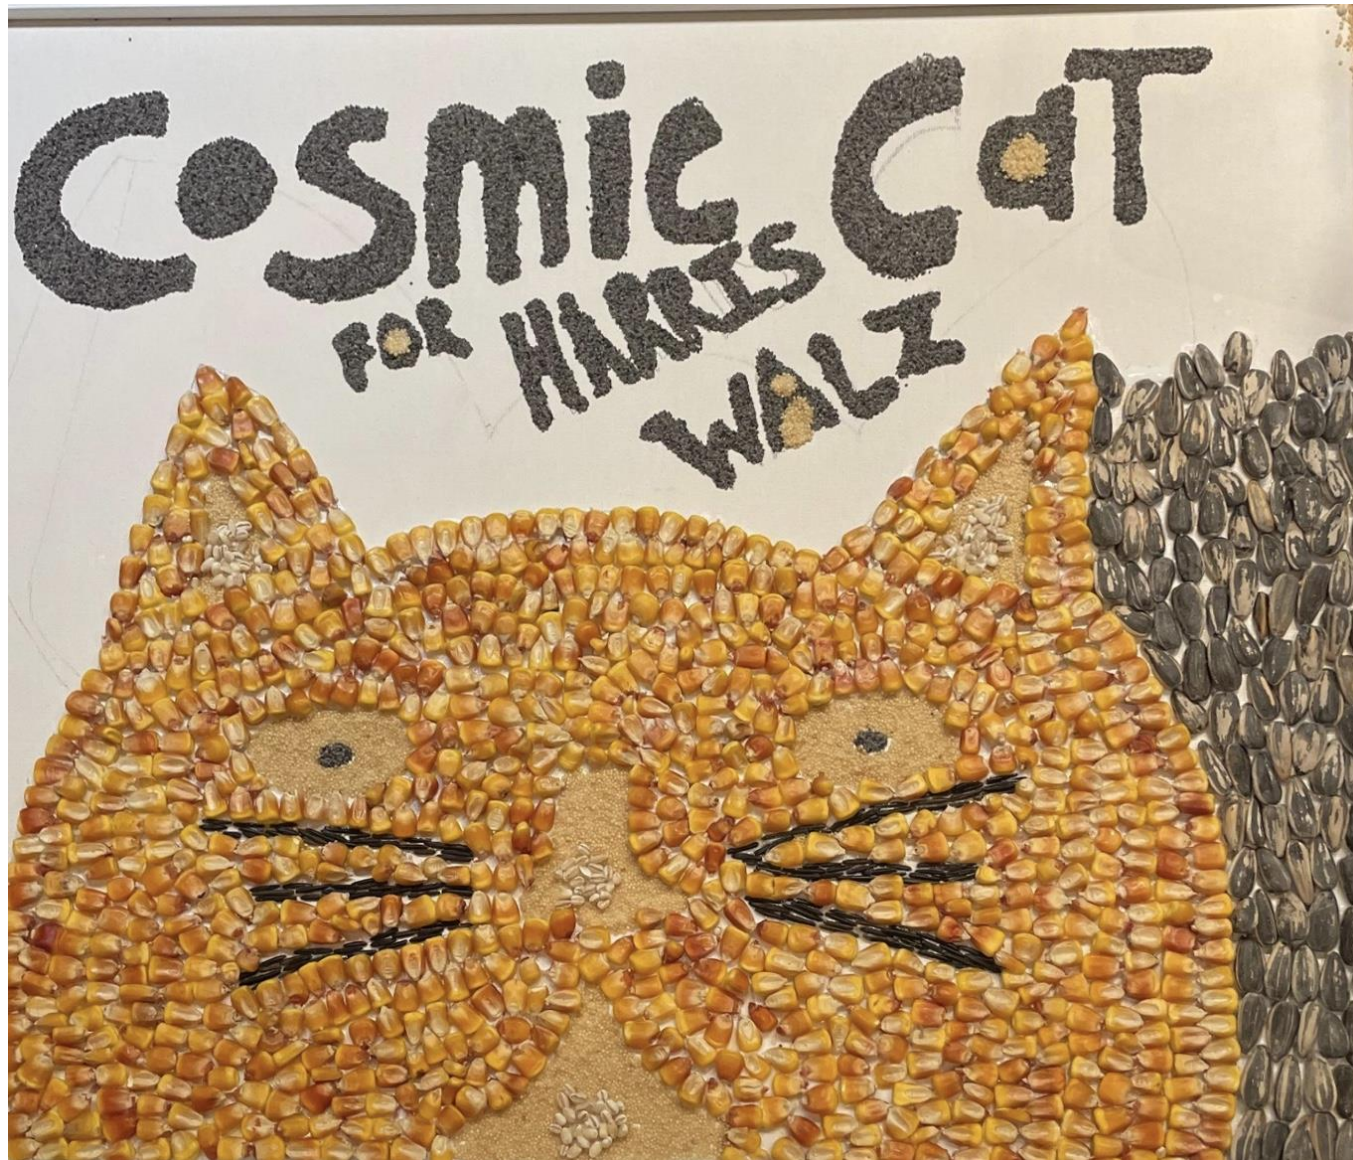 Cosmic CaT
FOR HARRIS
WALZ